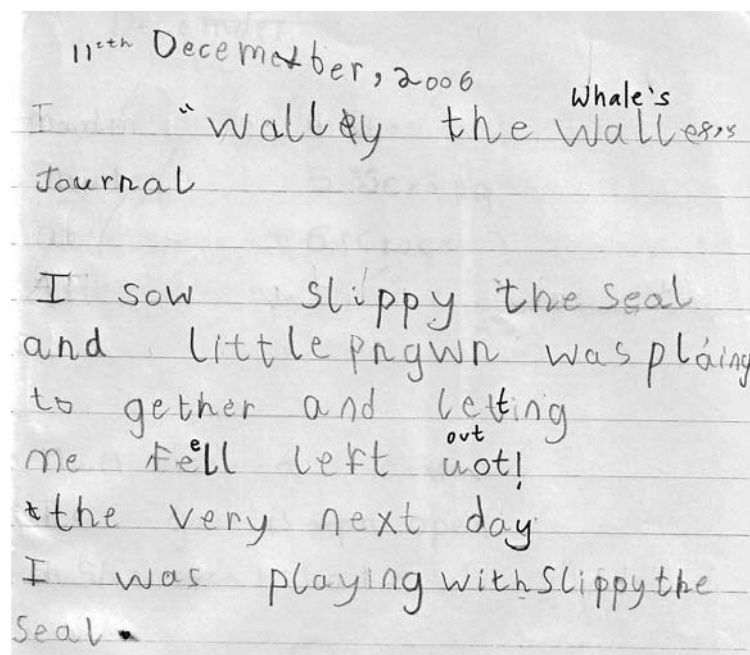 11th December, 2006
Whale's
I "Walley the Walles's
Journal
I sow slippy the seal
and little pngwn was plaing
to gether and letting
out
me fell left uot!
the very next day
I was playing with Slippy the
Seal.